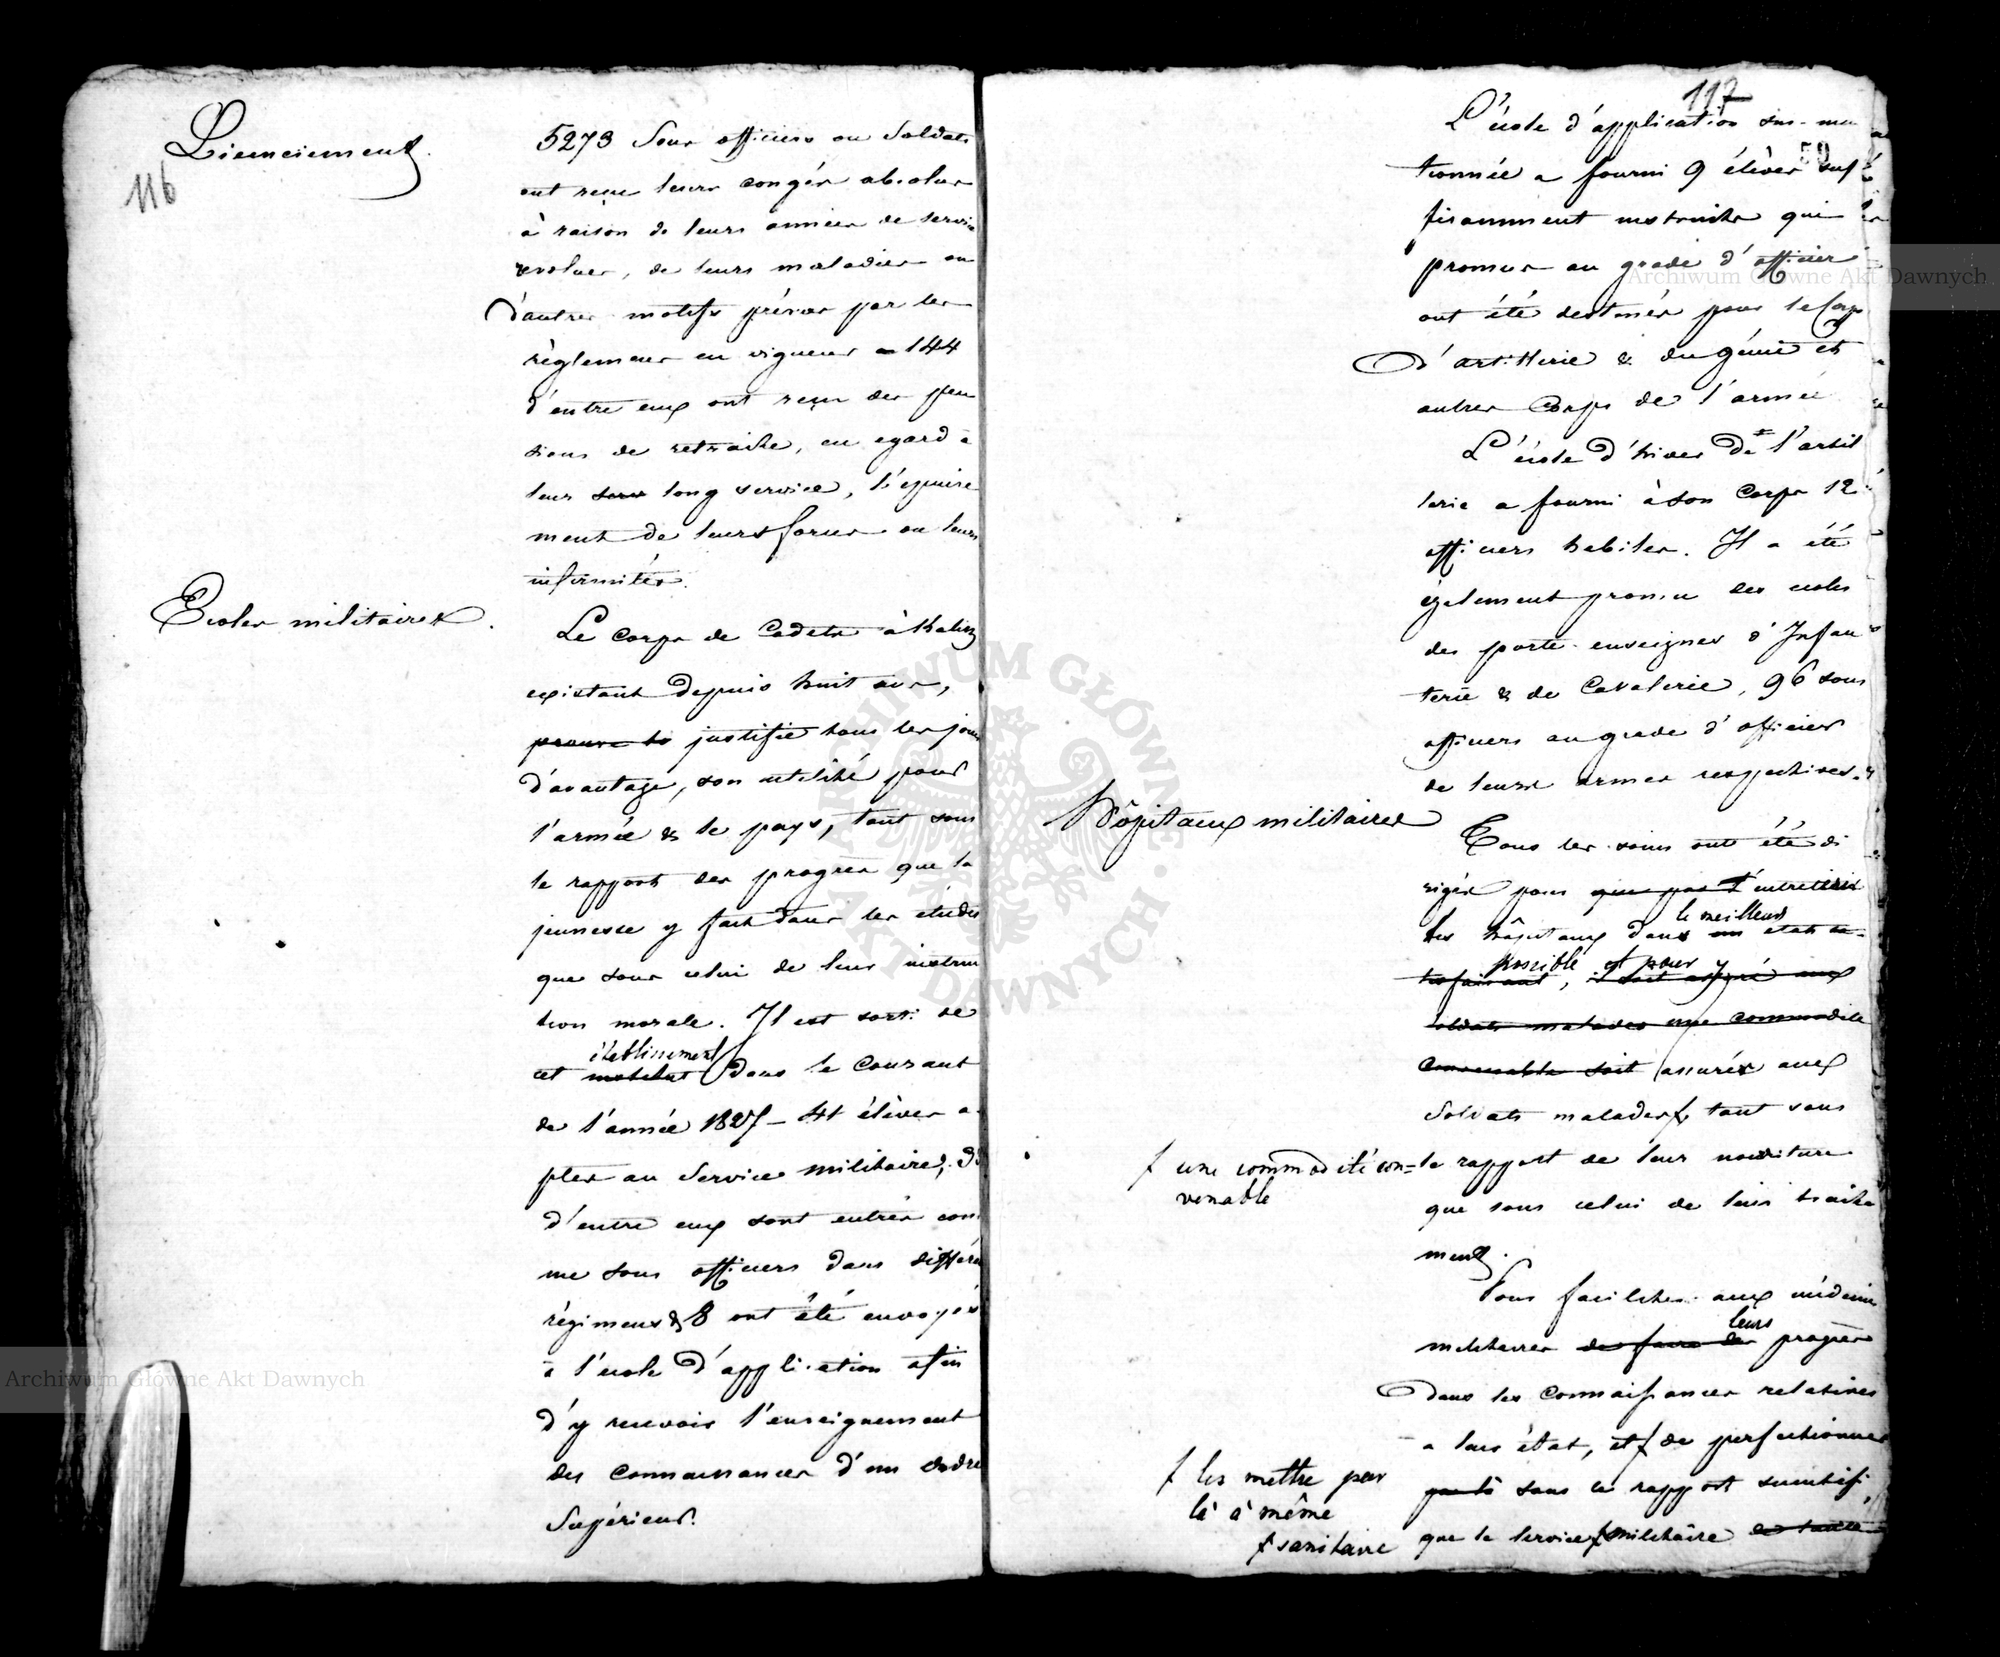 116
Licenciement.
5273 Sous officiers ou Soldats
ont reçu leurs congés absolus
à raison de leurs années de servi
revolues, de leurs maladies ou
d'autres motifs prévus par les
règlemens en vigueur 144
d'entre eux ont reçu des pen
sions de retraite, eu egard à
leur long service, l'épuise
ment de leurs forces ou leurs
infirmités.
Ecoles militaires.
Le Corps de Cadets à Kalisz
existant depuis huit ans,
prouve la justifie tous les jours
d'avantage, son utilité pour
l'armée & le pays, tant sous
le rapport des progrès que la
jeunesse y fait dans les études
que sous celui de leur instruc
tion morale. Il est sorti de
établissement
cet institut dans le Courant
de l'année 1827 – 41 élèves a
ptes au Service militaire,
d'entre eux sont entrés com
me sous officiers dans différen
régimens & 8 ont été envoyés
à l'école d'application afin
d'y recevoir l'enseignement
des connaissances d'un ordre
Supérieur.
117
59
L'école d'application sus-men
tionnée a fourni 9 élèves suf
fisamment instruits qui
promus au grade d'officier
ont été destinés pour le Corps
d'artillerie & du génie et
autres Corps de l'armée
L'école d'hiver de l'artil
lerie a fourni à son Corps 12
officiers habiles. Il a été
également promu des écoles
des porte-enseignes d'Infan
terie & de Cavalerie, 96 sous
officiers au grade d'officier
de leurs armes respectives.
Hôpitaux militaires
Tous les soins ont été di
rigés pour que par l'entretenir
les hôpitaux dans un état sa-
le meilleur
tisfaisant, soit assuré aux
possible et pour y
soldats malades une commodité
convenable soit assurés aux
Soldats malades, tant sous
f une commodité con=
venable
le rapport de leur nourriture
que sous celui de leur traite
ment.
Pour faciliter aux médecins
leurs
militaires de faire des progrès
dans les connaissances relatives
a leur état, et f de perfectionner
f les mettre par
là à même
par là sous ce rapport scientifi
f sanitaire
que le service f militaire de santé
Archiwum Główne Akt Dawnych
Archiwum Główne Akt Dawnych
ARCHIWUM GŁÓWNE · AKT DAWNYCH ·